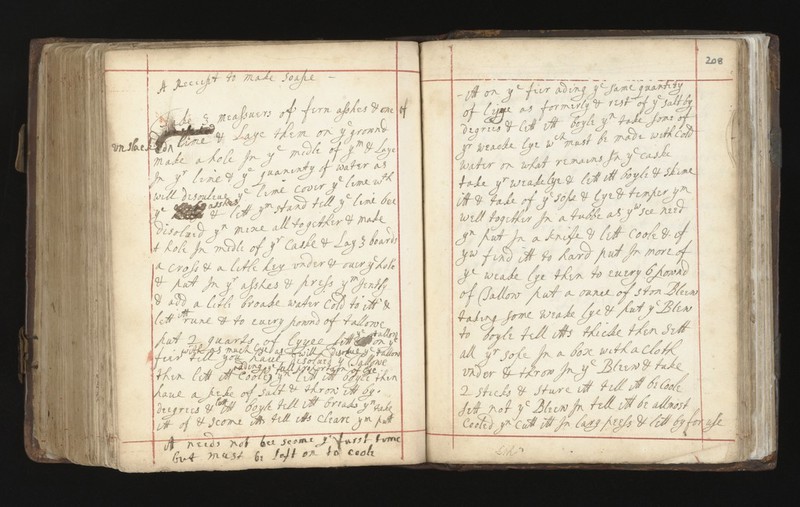 A Receipt to make Soape
Take 2 meassuers of firn asshes & one of
vnslackd lime & Laye them on ye ground
make a hole In ye midle of ym & Laye
In yr lime & ye quaninty of water as
will disoulue ye lime Couer ye lime wth
ye asshes & lett ym stand till ye lime bee
disolued ym mixe all together & make
a hole In midle of yr Caske & Lay 3 boards
a Cross & a litle hey vnder & ouer ye hole
& put In ye asshes & press ym Jently
& add a litle water Cold to itt &
lett itt rune & to euery pownd of tallowe
put 2 quarts of lyee sett on ye
with as much lye as will disolue ye tallow
fier till you haue disolued ye Tallowe
then lett itt Coole & lett itt boyle then
haue a of Salt & throw itt by
degrees & lett boyle tell itt breaks yn take
itt of & scome itt tell itts Cleare yn put
itt needs not bee scome ye furst time
but must be left on to coole
208
- itt on ye fier ading ye same quantity
of lyee as formerly & rest of ye salt by
degrees & lett itt boyle yn take some of
yr weake lye wch must be made with Cold
water on what remains In ye caske
take yr weake lye & lett itt boyle & skime
itt & take of ye sope & lye & temper ym
well together In a tubbe as you see need
yn put In a knife & lett coole & if
you find itt to hard put In more of
ye weake lye then to euery 6 pownd
of Tallow put a ounce of ston Blew
taking some weake lye & put ye Blew
to boyle tell itts thicke then sett
all yr sope In a box with a cloth
vnder & throw In ye Blew & take
2 sticks & sture itt tell itt be Coole
Sett not ye Blew In tell itt be allmost
Cooled yn Cutt itt In lays press & lett by for use